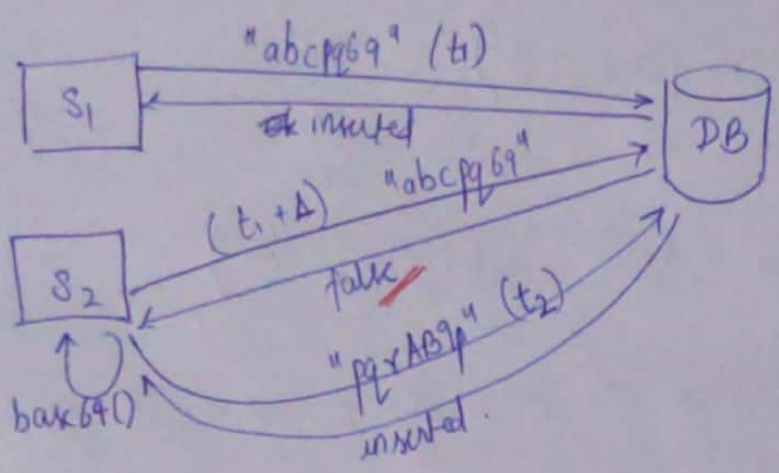 "abcpq69" (t1)
S1
inserted
DB
"abcpq69"
(t1+Δ)
false
S2
"pqrAB9p" (t2)
base64()
inserted.